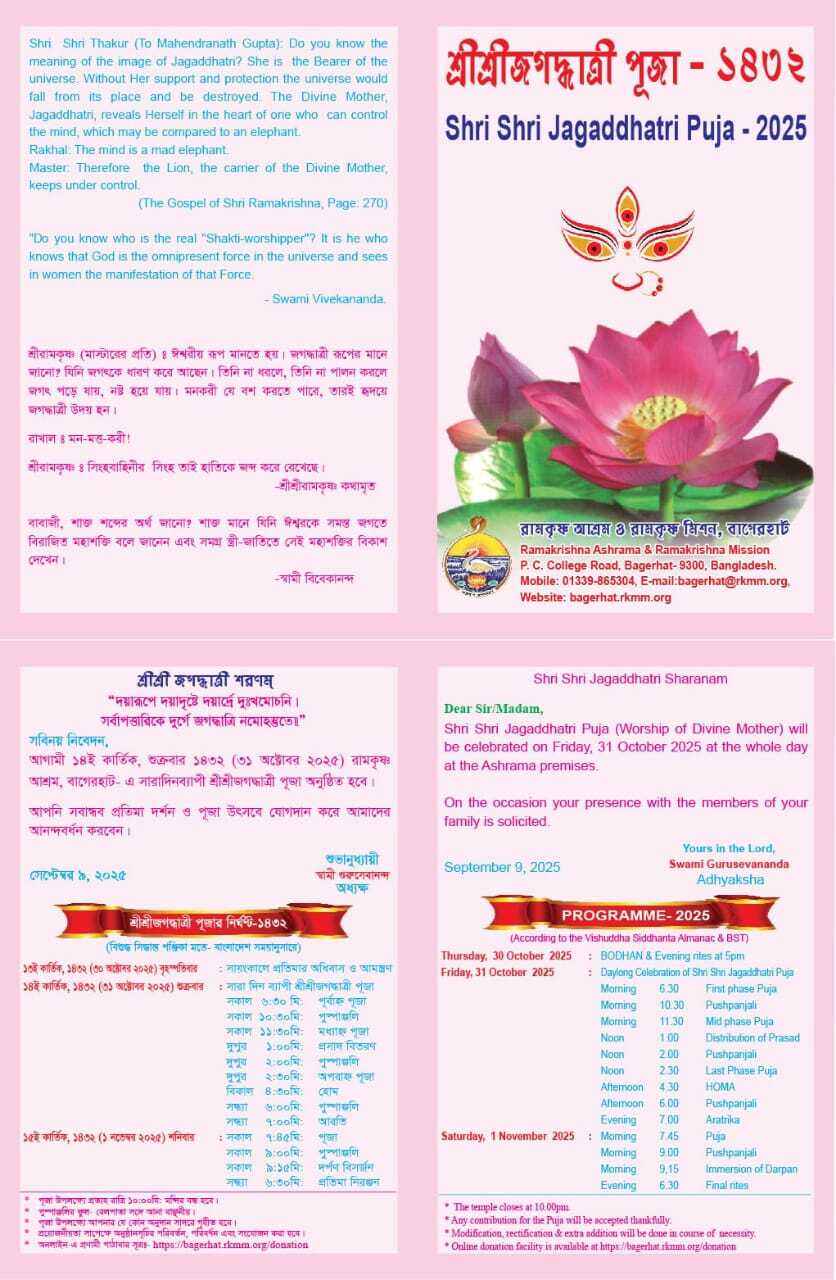 Shri Shri Thakur (To Mahendranath Gupta): Do you know the
meaning of the image of Jagaddhatri? She is the Bearer of the
universe. Without Her support and protection the universe would
fall from its place and be destroyed. The Divine Mother,
Jagaddhatri, reveals Herself in the heart of one who can control
the mind, which may be compared to an elephant.
Rakhal: The mind is a mad elephant.
Master: Therefore the Lion, the carrier of the Divine Mother,
keeps under control.
(The Gospel of Shri Ramakrishna, Page: 270)
"Do you know who is the real "Shakti-worshipper"? It is he who
knows that God is the omnipresent force in the universe and sees
in women the manifestation of that Force.
- Swami Vivekananda.
শ্রীরামকৃষ্ণ (মাস্টারের প্রতি) ঃ ঈশ্বরীয় রূপ মানতে হয়। জগদ্ধাত্রী রূপের মানে
জানো? যিনি জগৎকে ধারণ করে আছেন। তিনি না ধরলে, তিনি না পালন করলে
জগৎ পড়ে যায়, নষ্ট হয়ে যায়। মনকরী যে বশ করতে পারে, তারই হৃদয়ে
জগদ্ধাত্রী উদয় হন।
রাখাল ঃ মন-মত্ত-করী!
শ্রীরামকৃষ্ণ ঃ সিংহবাহিনীর সিংহ তাই হাতিকে জব্দ করে রেখেছে।
-শ্রীশ্রীরামকৃষ্ণ কথামৃত
বাবাজী, শাক্ত শব্দের অর্থ জানো? শাক্ত মানে যিনি ঈশ্বরকে সমস্ত জগতে
বিরাজিত মহাশক্তি বলে জানেন এবং সমগ্র স্ত্রী-জাতিতে সেই মহাশক্তির বিকাশ
দেখেন।
-স্বামী বিবেকানন্দ
শ্রীশ্রীজগদ্ধাত্রী পূজা - ১৪৩২
Shri Shri Jagaddhatri Puja - 2025
রামকৃষ্ণ আশ্রম ও রামকৃষ্ণ মিশন, বাগেরহাট
Ramakrishna Ashrama & Ramakrishna Mission
P. C. College Road, Bagerhat- 9300, Bangladesh.
Mobile: 01339-865304, E-mail:bagerhat@rkmm.org,
Website: bagerhat.rkmm.org
শ্রীশ্রী জগদ্ধাত্রী শরণম্
“দয়ারূপে দয়াদৃষ্টে দয়ার্দ্রে দুঃখমোচনি।
সর্বাপত্তারিকে দুর্গে জগদ্ধাত্রি নমোহস্তুতে॥”
সবিনয় নিবেদন,
আগামী ১৪ই কার্তিক, শুক্রবার ১৪৩২ (৩১ অক্টোবর ২০২৫) রামকৃষ্ণ
আশ্রম, বাগেরহাট- এ সারাদিনব্যাপী শ্রীশ্রীজগদ্ধাত্রী পূজা অনুষ্ঠিত হবে।
আপনি সবান্ধব প্রতিমা দর্শন ও পূজা উৎসবে যোগদান করে আমাদের
আনন্দবর্ধন করবেন।
শুভানুধ্যায়ী
সেপ্টেম্বর ৯, ২০২৫ স্বামী গুরুসেবানন্দ
অধ্যক্ষ
শ্রীশ্রীজগদ্ধাত্রী পূজার নির্ঘণ্ট-১৪৩২
(বিশুদ্ধ সিদ্ধান্ত পঞ্জিকা মতে- বাংলাদেশ সময়ানুসারে)
১৩ই কার্তিক, ১৪৩২ (৩০ অক্টোবর ২০২৫) বৃহস্পতিবার : সায়ংকালে প্রতিমার অধিবাস ও আমন্ত্রণ
১৪ই কার্তিক, ১৪৩২ (৩১ অক্টোবর ২০২৫) শুক্রবার : সারা দিন ব্যাপী শ্রীশ্রীজগদ্ধাত্রী পূজা
সকাল ৬:৩০ মি: পূর্বাহ্ন পূজা
সকাল ১০:৩০মি: পুষ্পাঞ্জলি
সকাল ১১:৩০মি: মধ্যাহ্ন পূজা
দুপুর ১:০০মি: প্রসাদ বিতরণ
দুপুর ২:০০মি: পুষ্পাঞ্জলি
দুপুর ২:৩০মি: অপরাহ্ন পূজা
বিকাল ৪:৩০মি: হোম
সন্ধ্যা ৬:০০মি: পুষ্পাঞ্জলি
সন্ধ্যা ৭:০০মি: আরতি
১৫ই কার্তিক, ১৪৩২ (১ নভেম্বর ২০২৫) শনিবার : সকাল ৭:৪৫মি: পূজা
সকাল ৯:০০মি: পুষ্পাঞ্জলি
সকাল ৯:১৫মি: দর্পণ বিসর্জন
সন্ধ্যা ৬:৩০মি: প্রতিমা নিরঞ্জন
* পূজা উপলক্ষ্যে প্রত্যহ রাত্রি ১০:০০মি: মন্দির বন্ধ হবে।
* পুষ্পাঞ্জলির ফুল- বেলপাতা সঙ্গে আনা বাঞ্ছনীয়।
* পূজা উপলক্ষ্যে আপনার যে কোন অনুদান সাদরে গৃহীত হবে।
* প্রয়োজনীয়তা সাপেক্ষে অনুষ্ঠানসূচির পরিবর্তন, পরিবর্ধন এবং সংযোজন করা হবে।
* অনলাইন-এ প্রণামী পাঠাবার সূত্রঃ- https://bagerhat.rkmm.org/donation
Shri Shri Jagaddhatri Sharanam
Dear Sir/Madam,
Shri Shri Jagaddhatri Puja (Worship of Divine Mother) will
be celebrated on Friday, 31 October 2025 at the whole day
at the Ashrama premises.
On the occasion your presence with the members of your
family is solicited.
Yours in the Lord,
September 9, 2025 Swami Gurusevananda
Adhyaksha
PROGRAMME- 2025
(According to the Vishuddha Siddhanta Almanac & BST)
Thursday, 30 October 2025 : BODHAN & Evening rites at 5pm
Friday, 31 October 2025 : Daylong Celebration of Shri Shri Jagaddhatri Puja
Morning 6.30 First phase Puja
Morning 10.30 Pushpanjali
Morning 11.30 Mid phase Puja
Noon 1.00 Distribution of Prasad
Noon 2.00 Pushpanjali
Noon 2.30 Last Phase Puja
Afternoon 4.30 HOMA
Afternoon 6.00 Pushpanjali
Evening 7.00 Aratrika
Saturday, 1 November 2025 : Morning 7.45 Puja
Morning 9.00 Pushpanjali
Morning 9,15 Immersion of Darpan
Evening 6.30 Final rites
* The temple closes at 10.00pm.
* Any contribution for the Puja will be accepted thankfully.
* Modification, rectification & extra addition will be done in course of necessity.
* Online donation facility is available at https://bagerhat.rkmm.org/donation